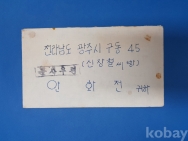 전라남도 광주시 구동 45
(신상철씨 방)
인 화 전 귀하
kobay